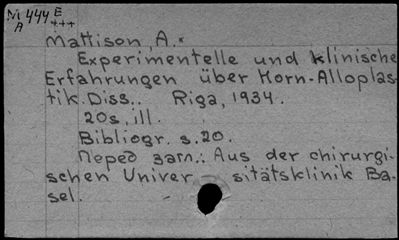 N 444 E
A +++
Mattison, A.
Experimentelle und klinische
Erfahrungen über Horn-Alloplas-
tik. Diss.. Riga, 1934.
20s. ill.
Bibliogr. s. 20.
Перед загл.: Aus der chirurgi-
schen Univer - sitätsklinik Ba-
sel.